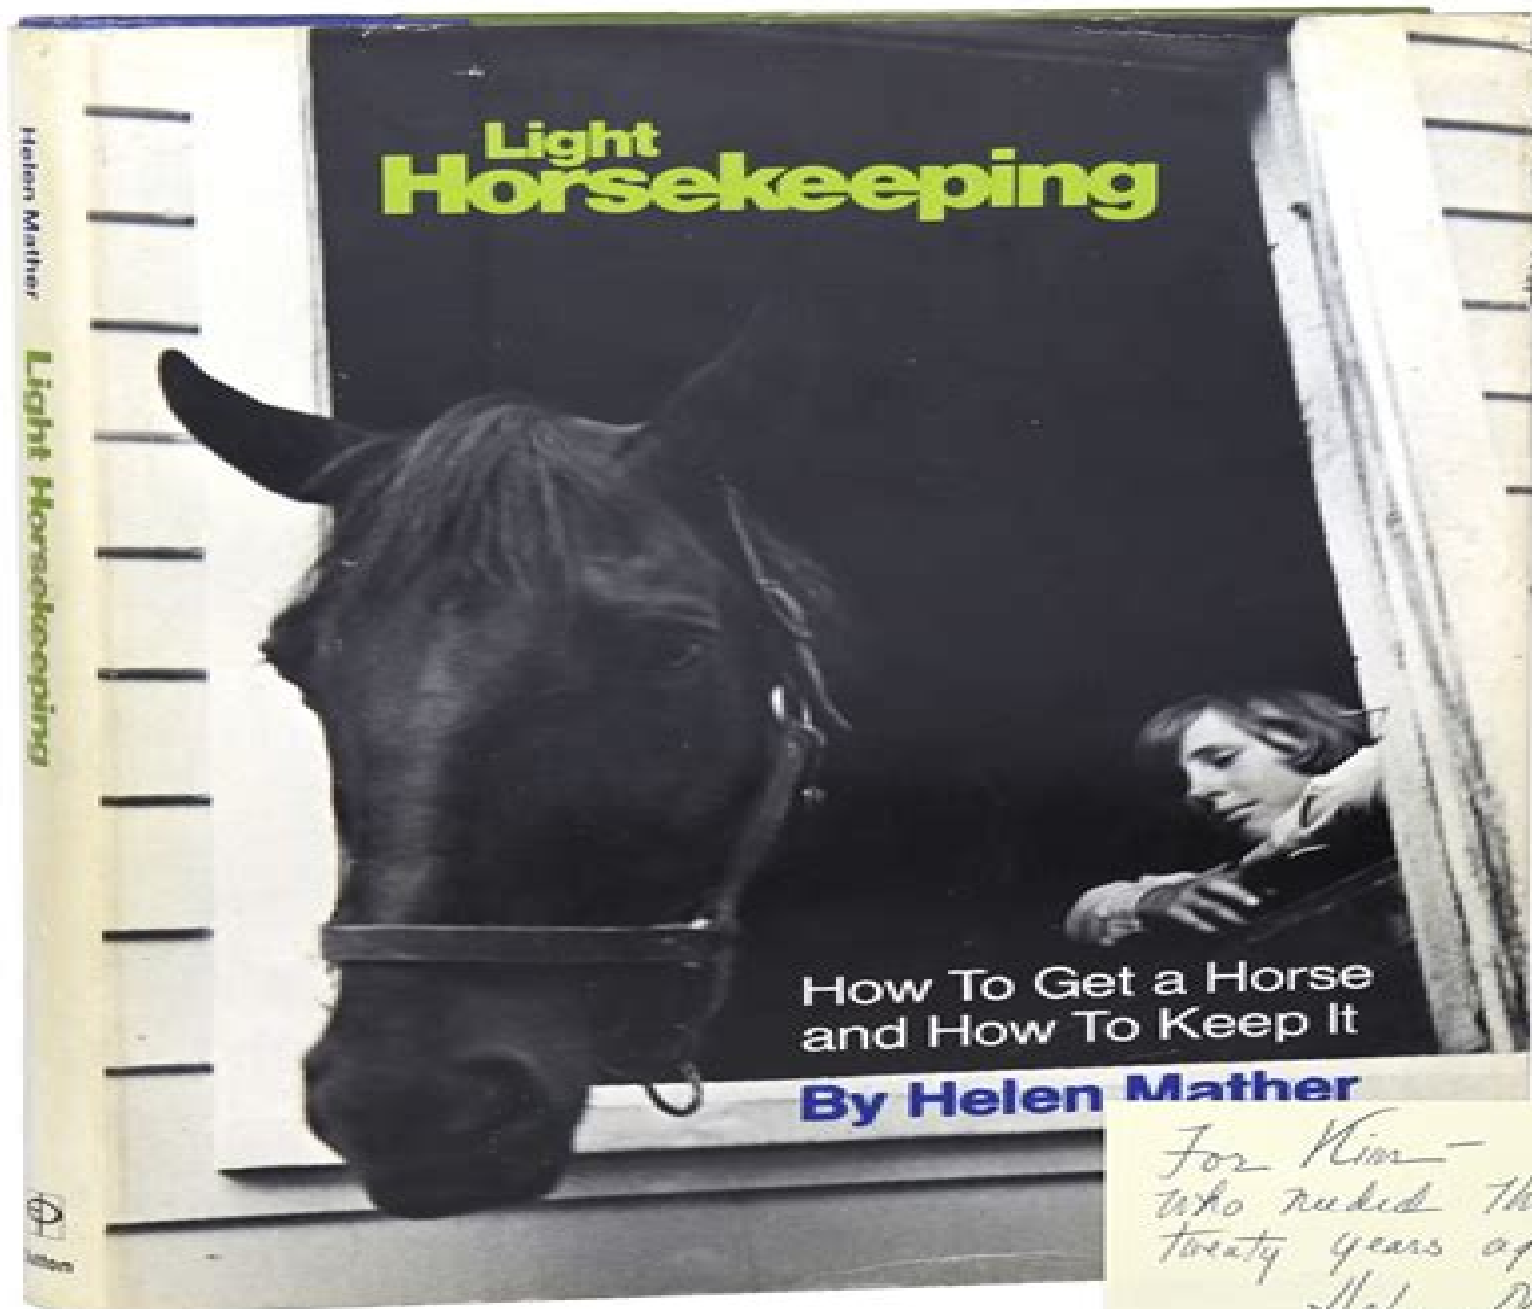 Helen Mather
Light Horsekeeping
Light
Horsekeeping
How To Get a Horse
and How To Keep It
By Helen Mather
For Kim—
who needed
twenty years